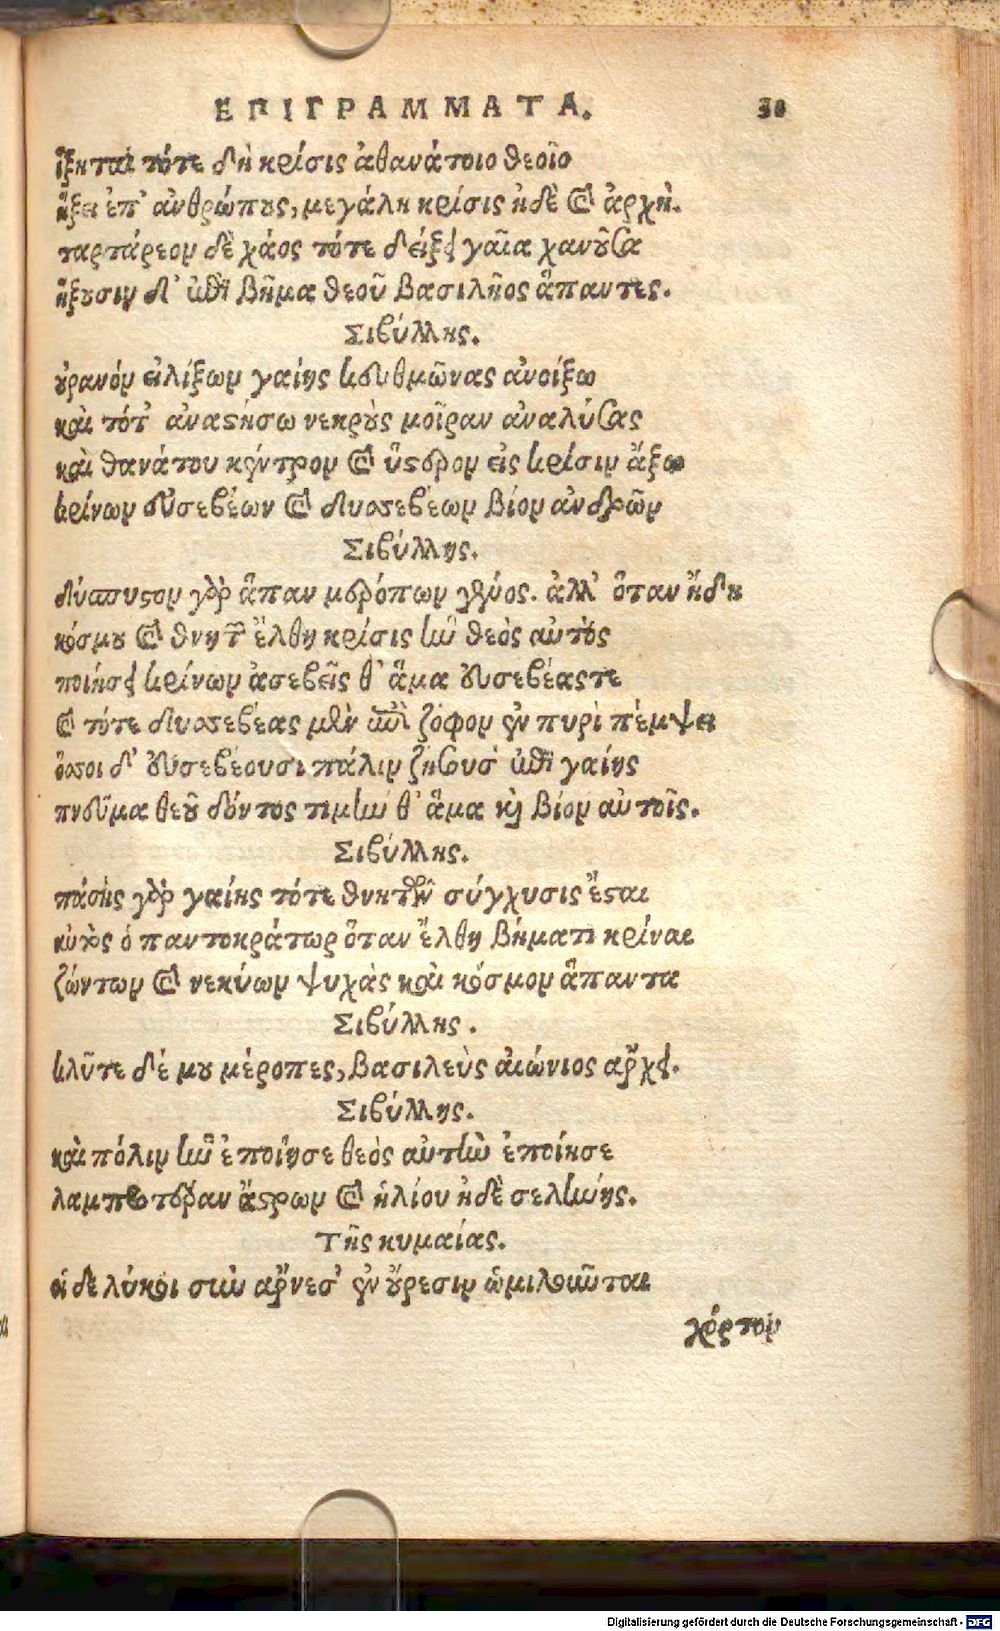 ΕΠΙΓΡΑΜΜΑΤΑ. 30
ἵξηται τότε δὴ κρίσις ἀθανάτοιο θεοῖο
ἥξει ἐπ' ἀνθρώπους, μεγάλη κρίσις ἠδὲ καὶ ἀρχὴ.
ταρτάρεον δὲ χάος τότε δείξει γαῖα χανοῦσα
ἥξουσιν δ' ἐπὶ βῆμα θεοῦ βασιλῆος ἅπαντες.
Σιβύλλης.
οὐρανὸν εἱλίξων γαίης κευθμῶνας ἀνοίξω
καὶ τότ' ἀναστήσω νεκροὺς μοῖραν ἀναλύσας
καὶ θανάτου κέντρον καὶ ὕστερον εἰς κρίσιν ἄξω
κρίνων εὐσεβέων καὶ δυσσεβέων βίον ἀνδρῶν
Σιβύλλης.
δύσπυστον γὰρ ἅπαν μερόπων γένος. ἀλλ' ὅταν ἤδη
κόσμου καὶ θνητῶν ἔλθη κρίσις ἣν θεὸς αὐτὸς
ποιήσει κρίνων ἀσεβεῖς θ' ἅμα εὐσεβέας τε
καὶ τότε δυσσεβέας μὲν ὑπὸ ζόφον ἐν πυρὶ πέμψει
ὅσσοι δ' εὐσεβέουσι πάλιν ζήσουσ' ἐπὶ γαίης
πνεῦμα θεοῦ δόντος τιμὴν θ' ἅμα καὶ βίον αὐτοῖς.
Σιβύλλης.
πάσης γὰρ γαίης τότε θνητῶν σύγχυσις ἔσται
αὐτὸς ὁ παντοκράτωρ ὅταν ἔλθη βήματι κρίναι
ζώντων καὶ νεκύων ψυχὰς καὶ κόσμον ἅπαντα
Σιβύλλης.
κλῦτε δέ μου μέροπες, βασιλεὺς αἰώνιος ἄρχει.
Σιβύλλης.
καὶ πόλιν ἣν ἐποίησε θεὸς αὐτὴν ἐποίησε
λαμπροτέραν ἄστρων καὶ ἡλίου ἠδὲ σελήνης.
Τῆς κυμαίας.
οἱ δε λύκοι σὺν ἄρνεσ' ἐν οὔρεσιν ὡμιλοιῶται
χόρτον
Digitalisierung gefördert durch die Deutsche Forschungsgemeinschaft - DFG